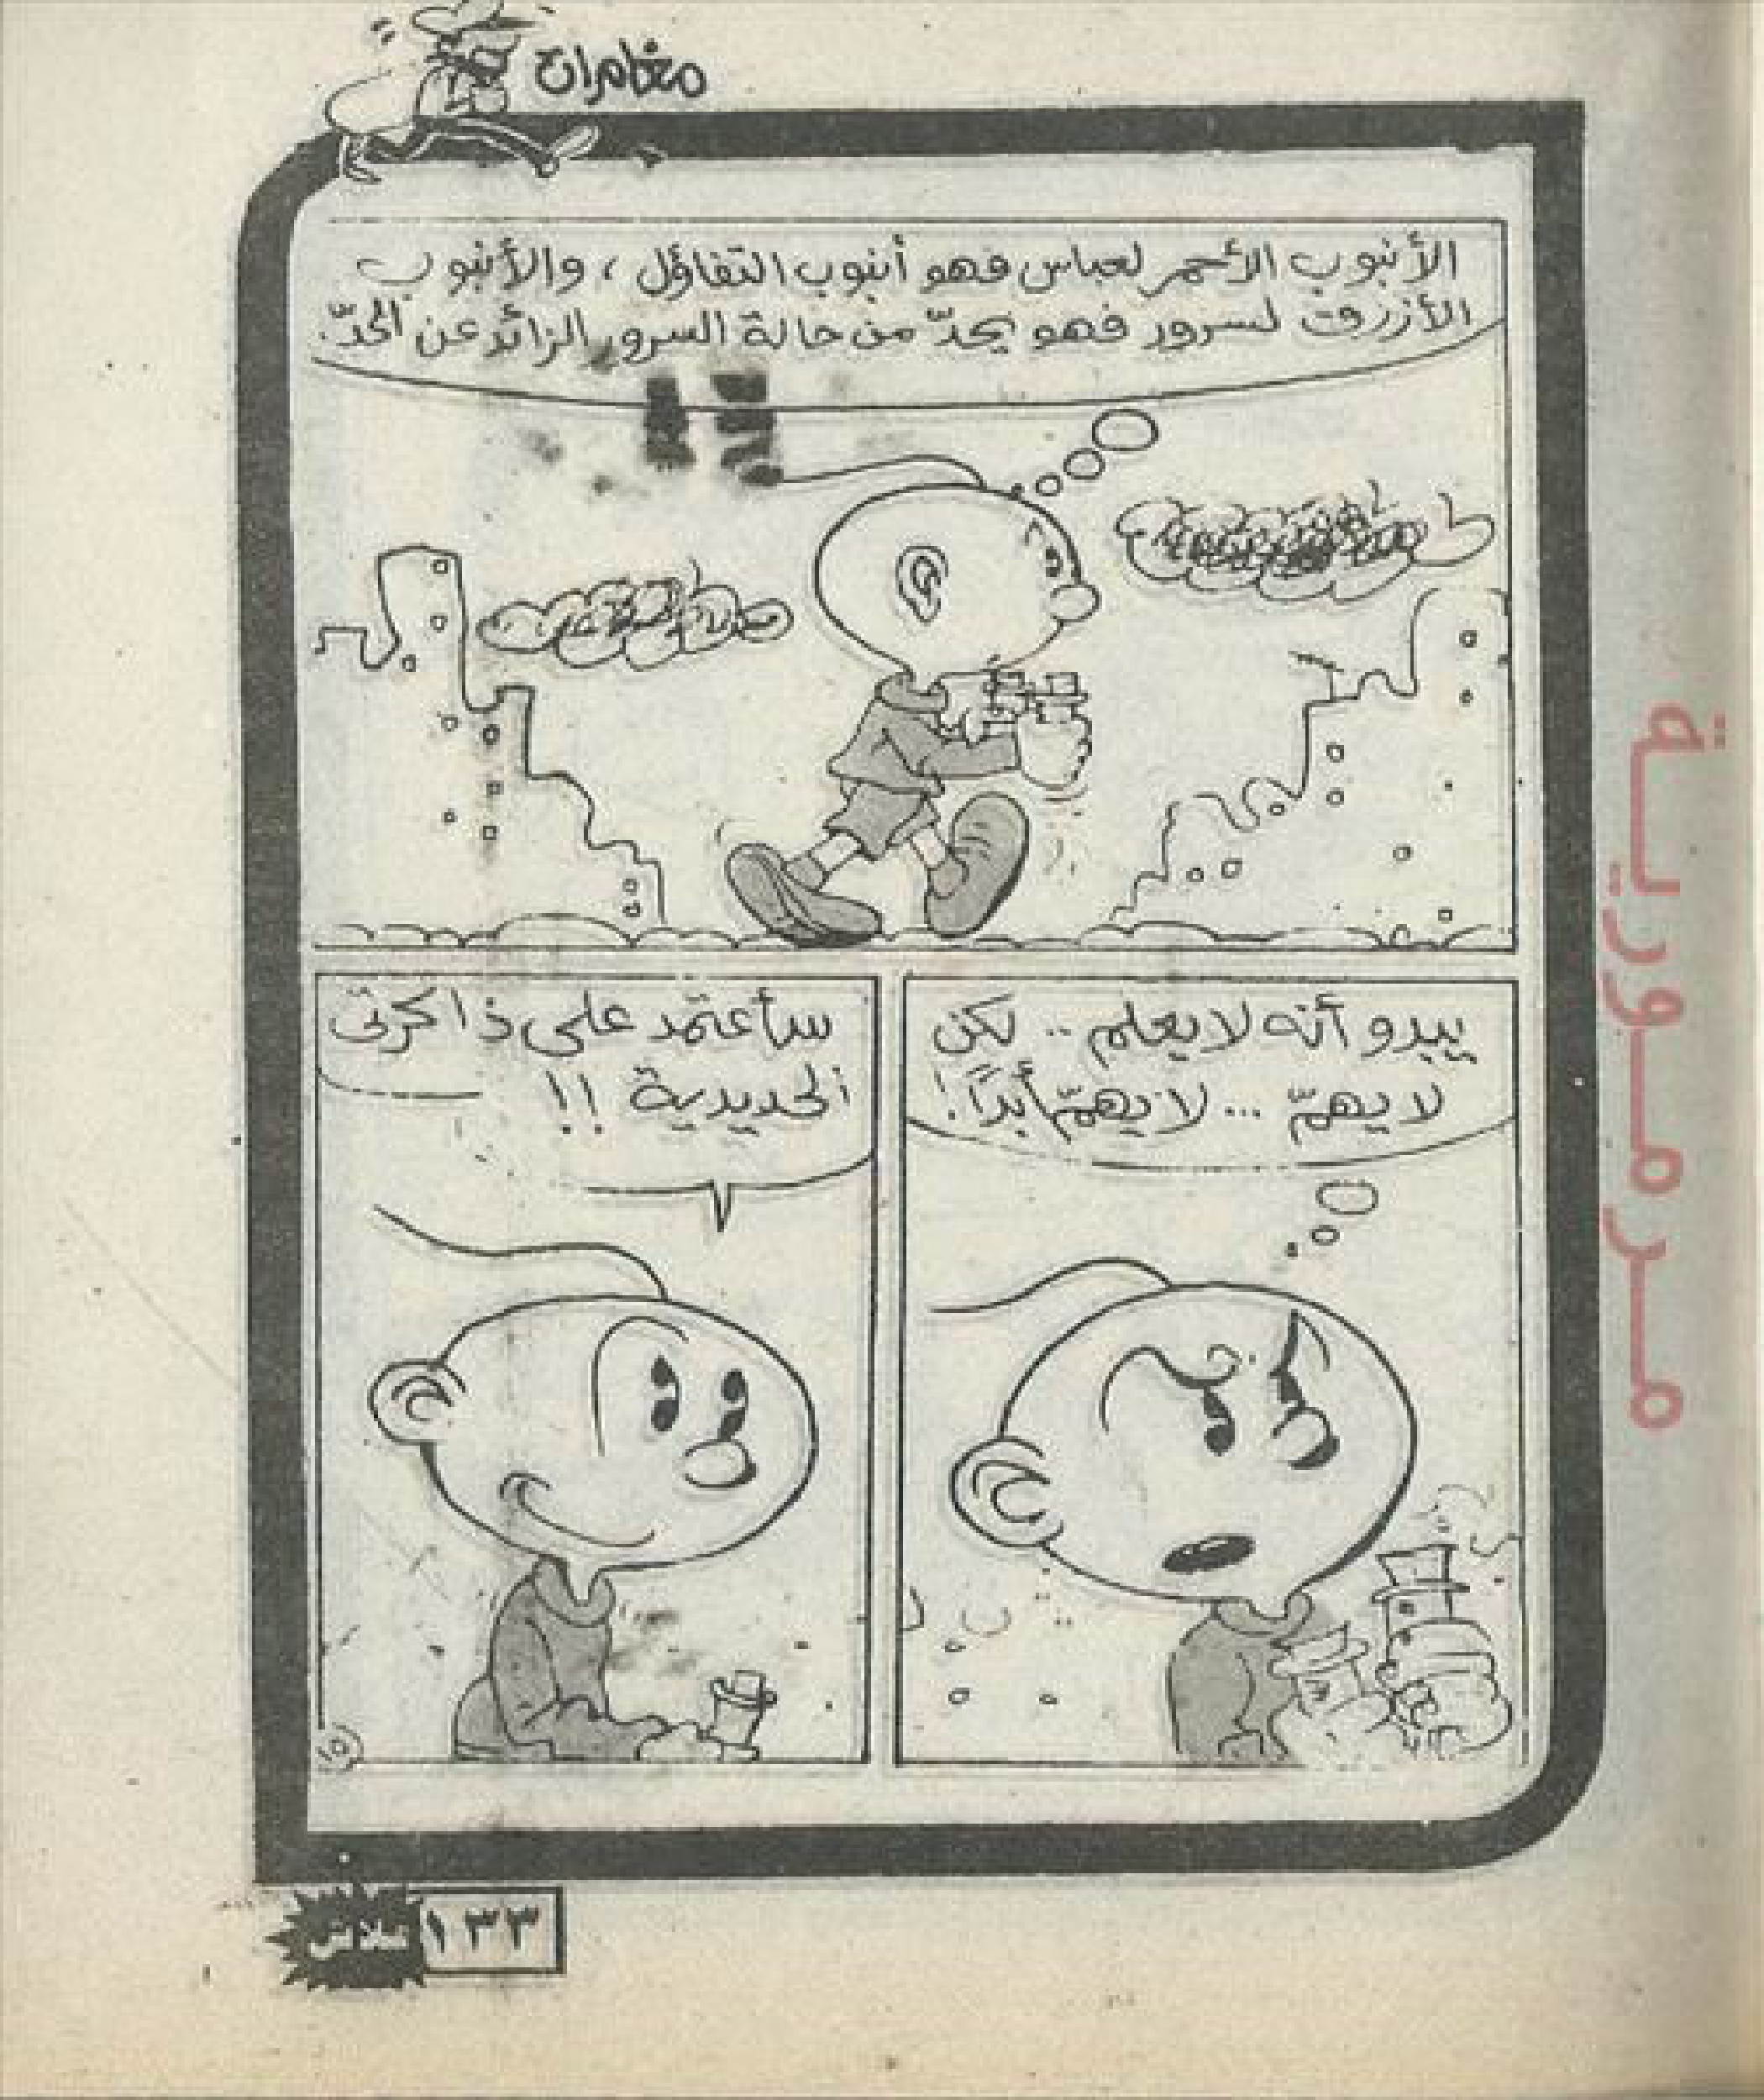 مغامرات
الأنبوب الأحمر لعباس فهو أنبوب التفاؤل ، والأنبوب
الأزرق لسرور فهو يحدّ من حالة السرور الزائد عن الحدّ.
يبدو أنه لا يعلم .. لكن
لا يهمّ ... لا يهمّ أبداً!
سأعتمد على ذاكرتى
الحديدية !!
١٥
فلاش
١٣٣
مرمورية